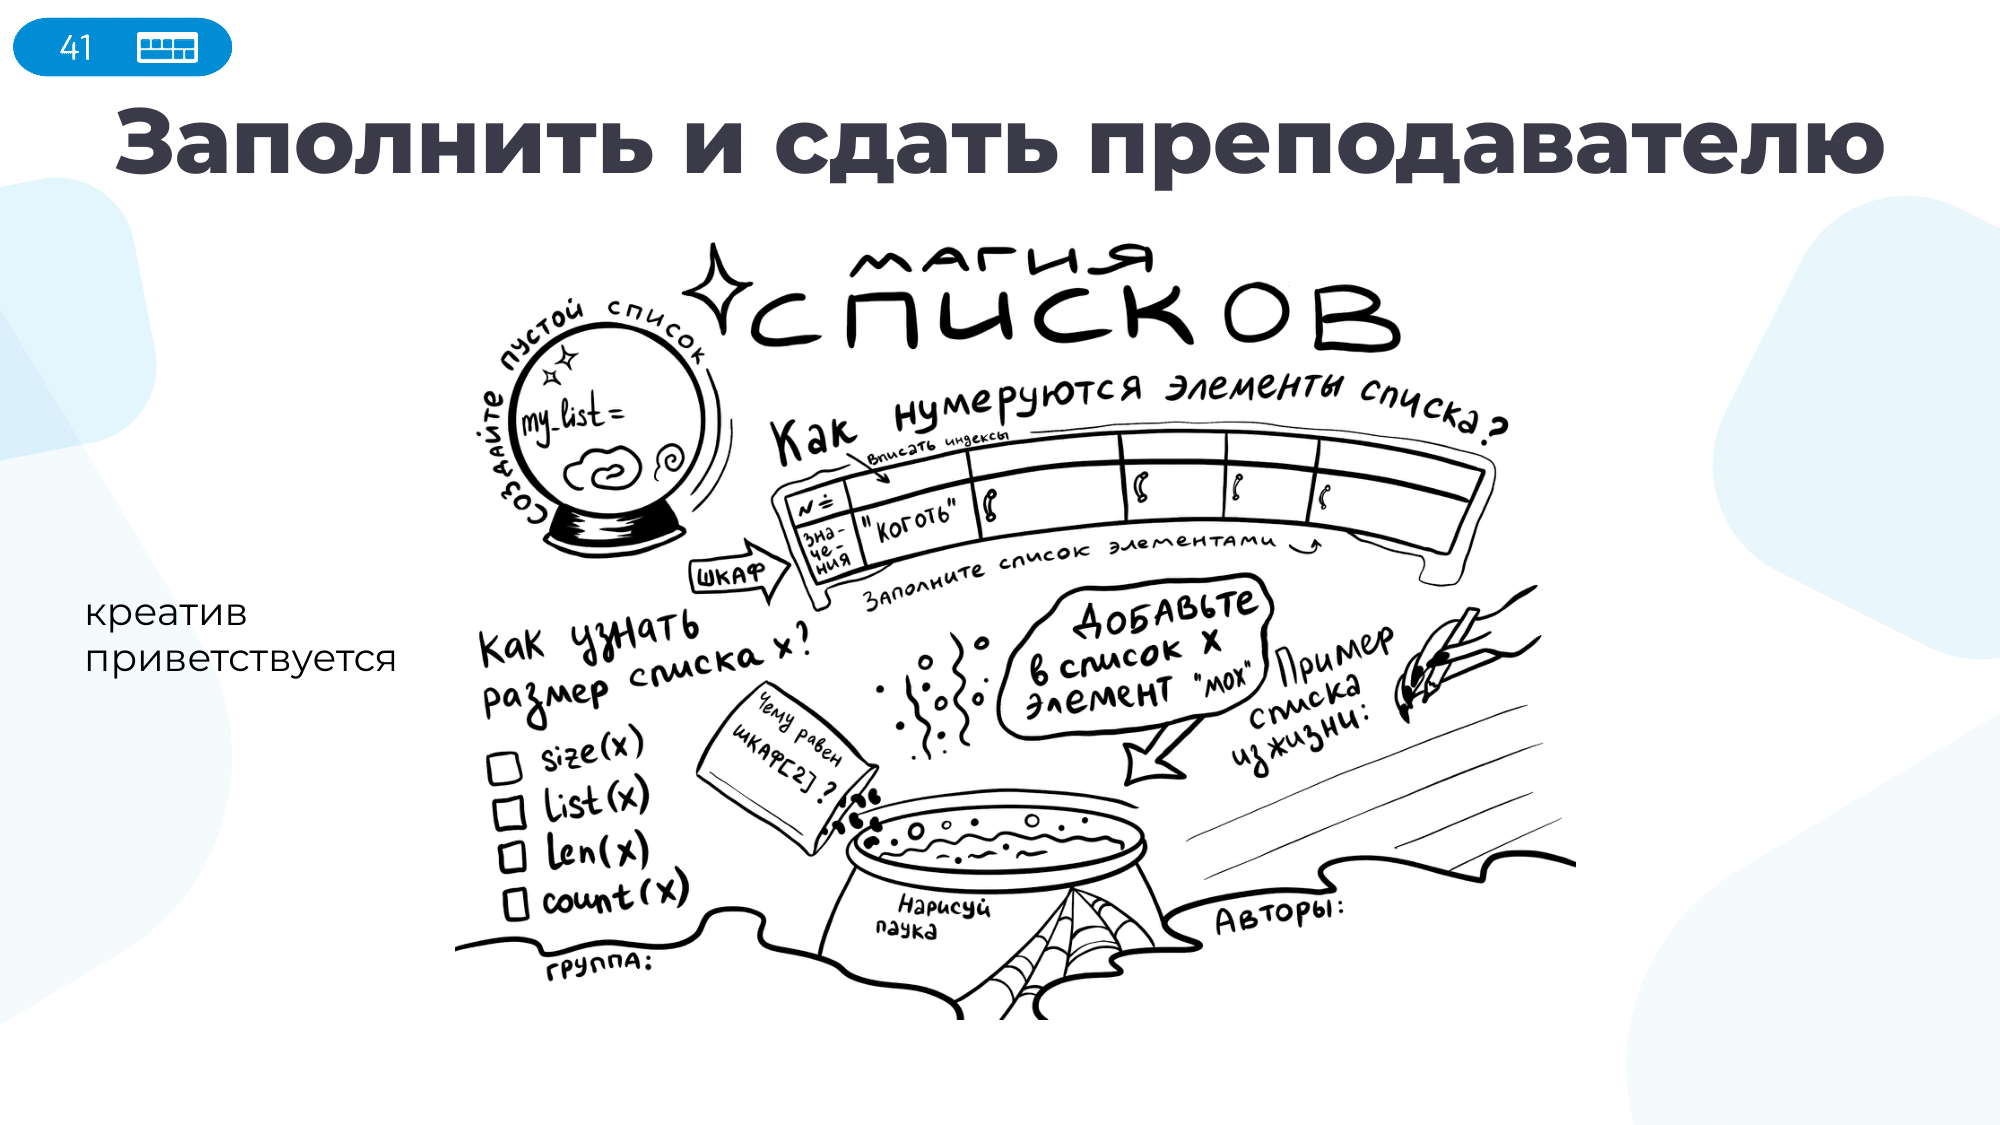 41
Заполнить и сдать преподавателю
МАГИЯ
СПИСКОВ
СОЗДАЙТЕ ПУСТОЙ СПИСОК
my_list=
Как нумеруются элементы списка?
Вписать индексы
№
зна-
че-
ния
"КОГОТЬ"
ШКАФ
Заполните список элементами
креатив
приветствуется
Как узнать
размер списка x?
size(x)
list(x)
len(x)
count(x)
Чему равен
ШКАФ[2]?
ДОБАВЬТЕ
в список X
элемент "мох"
Пример
списка
из жизни:
Нарисуй
паука
ГРУППА:
Авторы: